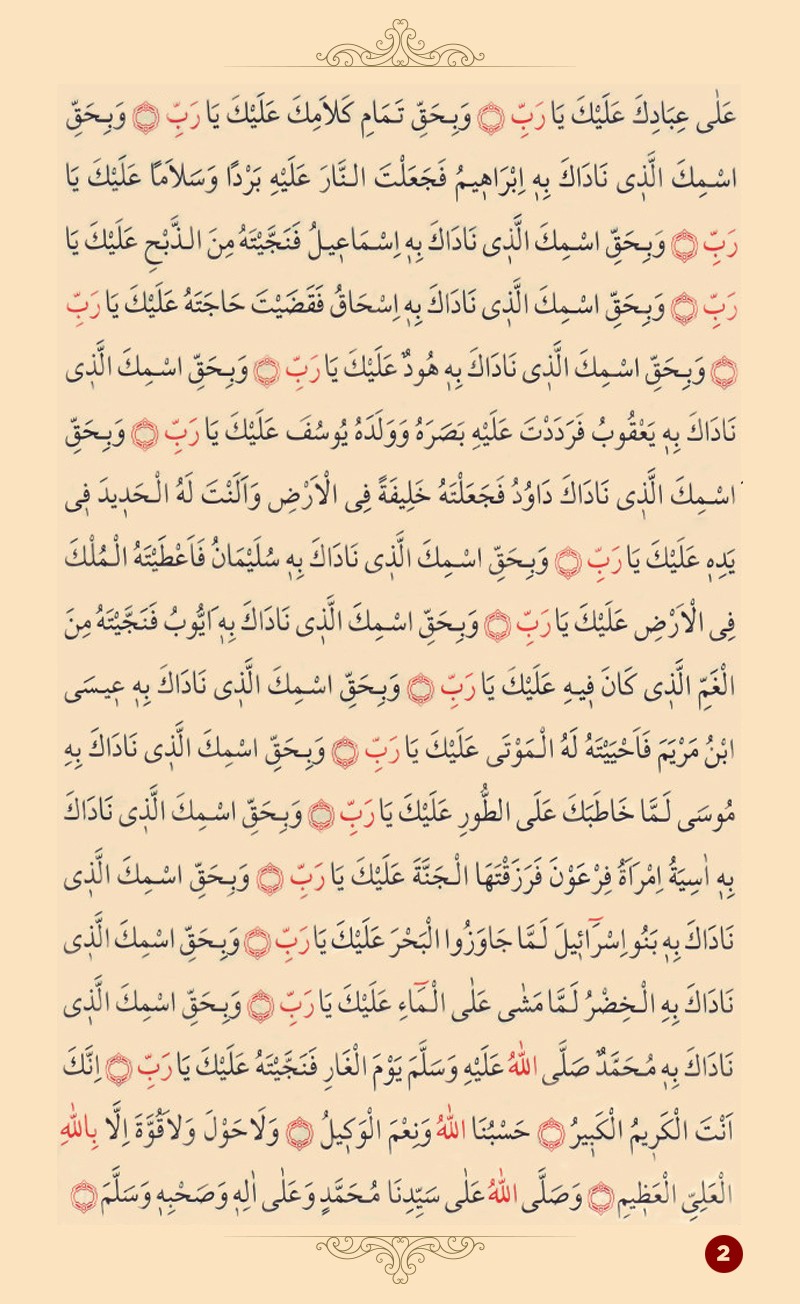 عَلٰى عِبَادِكَ عَلَيْكَ يَا رَبِّ ۝ وَبِحَقِّ تَمَامِ كَلَامِكَ عَلَيْكَ يَا رَبِّ ۝ وَبِحَقِّ
اسْمِكَ الَّذٖى نَادَاكَ بِهٖ اِبْرَاهٖيمُ فَجَعَلْتَ النَّارَ عَلَيْهِ بَرْدًا وَسَلَامًا عَلَيْكَ يَا
رَبِّ ۝ وَبِحَقِّ اسْمِكَ الَّذٖى نَادَاكَ بِهٖ اِسْمَاعٖيلُ فَنَجَّيْتَهُ مِنَ الذَّبْحِ عَلَيْكَ يَا
رَبِّ ۝ وَبِحَقِّ اسْمِكَ الَّذٖى نَادَاكَ بِهٖ اِسْحَاقُ فَقَضَيْتَ حَاجَتَهُ عَلَيْكَ يَا رَبِّ
۝ وَبِحَقِّ اسْمِكَ الَّذٖى نَادَاكَ بِهٖ هُودٌ عَلَيْكَ يَا رَبِّ ۝ وَبِحَقِّ اسْمِكَ الَّذٖى
نَادَاكَ بِهٖ يَعْقُوبُ فَرَدَدْتَ عَلَيْهِ بَصَرَهُ وَوَلَدَهُ يُوسُفَ عَلَيْكَ يَا رَبِّ ۝ وَبِحَقِّ
اسْمِكَ الَّذٖى نَادَاكَ دَاوُدُ فَجَعَلْتَهُ خَلِيفَةً فِى الْاَرْضِ وَاَلَنْتَ لَهُ الْحَدٖيدَ فٖى
يَدِهٖ عَلَيْكَ يَا رَبِّ ۝ وَبِحَقِّ اسْمِكَ الَّذٖى نَادَاكَ بِهٖ سُلَيْمَانُ فَاَعْطَيْتَهُ الْمُلْكَ
فِى الْاَرْضِ عَلَيْكَ يَا رَبِّ ۝ وَبِحَقِّ اسْمِكَ الَّذٖى نَادَاكَ بِهٖ اَيُّوبُ فَنَجَّيْتَهُ مِنَ
الْغَمِّ الَّذٖى كَانَ فٖيهِ عَلَيْكَ يَا رَبِّ ۝ وَبِحَقِّ اسْمِكَ الَّذٖى نَادَاكَ بِهٖ عٖيسَى
ابْنُ مَرْيَمَ فَاَحْيَيْتَهُ لَهُ الْمَوْتَى عَلَيْكَ يَا رَبِّ ۝ وَبِحَقِّ اسْمِكَ الَّذٖى نَادَاكَ بِهِ
مُوسَى لَمَّا خَاطَبَكَ عَلَى الطُّورِ عَلَيْكَ يَا رَبِّ ۝ وَبِحَقِّ اسْمِكَ الَّذٖى نَادَاكَ
بِهٖ اٰسِيَةُ اِمْرَاَةُ فِرْعَوْنَ فَرَزَقْتَهَا الْجَنَّةَ عَلَيْكَ يَا رَبِّ ۝ وَبِحَقِّ اسْمِكَ الَّذٖى
نَادَاكَ بِهٖ بَنُو اِسْرَٓائٖيلَ لَمَّا جَاوَزُوا الْبَحْرَ عَلَيْكَ يَا رَبِّ ۝ وَبِحَقِّ اسْمِكَ الَّذٖى
نَادَاكَ بِهِ الْخِضْرُ لَمَّا مَشٰى عَلٰى الْمَٓاءِ عَلَيْكَ يَا رَبِّ ۝ وَبِحَقِّ اسْمِكَ الَّذٖى
نَادَاكَ بِهٖ مُحَمَّدٌ صَلَّى اللّٰهُ عَلَيْهِ وَسَلَّمَ يَوْمَ الْغَارِ فَنَجَّيْتَهُ عَلَيْكَ يَا رَبِّ ۝ اِنَّكَ
اَنْتَ الْكَرٖيمُ الْكَبٖيرُ ۝ حَسْبُنَا اللّٰهُ وَنِعْمَ الْوَكٖيلُ ۝ وَلَا حَوْلَ وَلَا قُوَّةَ اِلَّا بِاللّٰهِ
الْعَلِىِّ الْعَظٖيمِ ۝ وَصَلَّى اللّٰهُ عَلٰى سَيِّدِنَا مُحَمَّدٍ وَعَلٰى اٰلِهٖ وَصَحْبِهٖ وَسَلَّمَ ۝
2